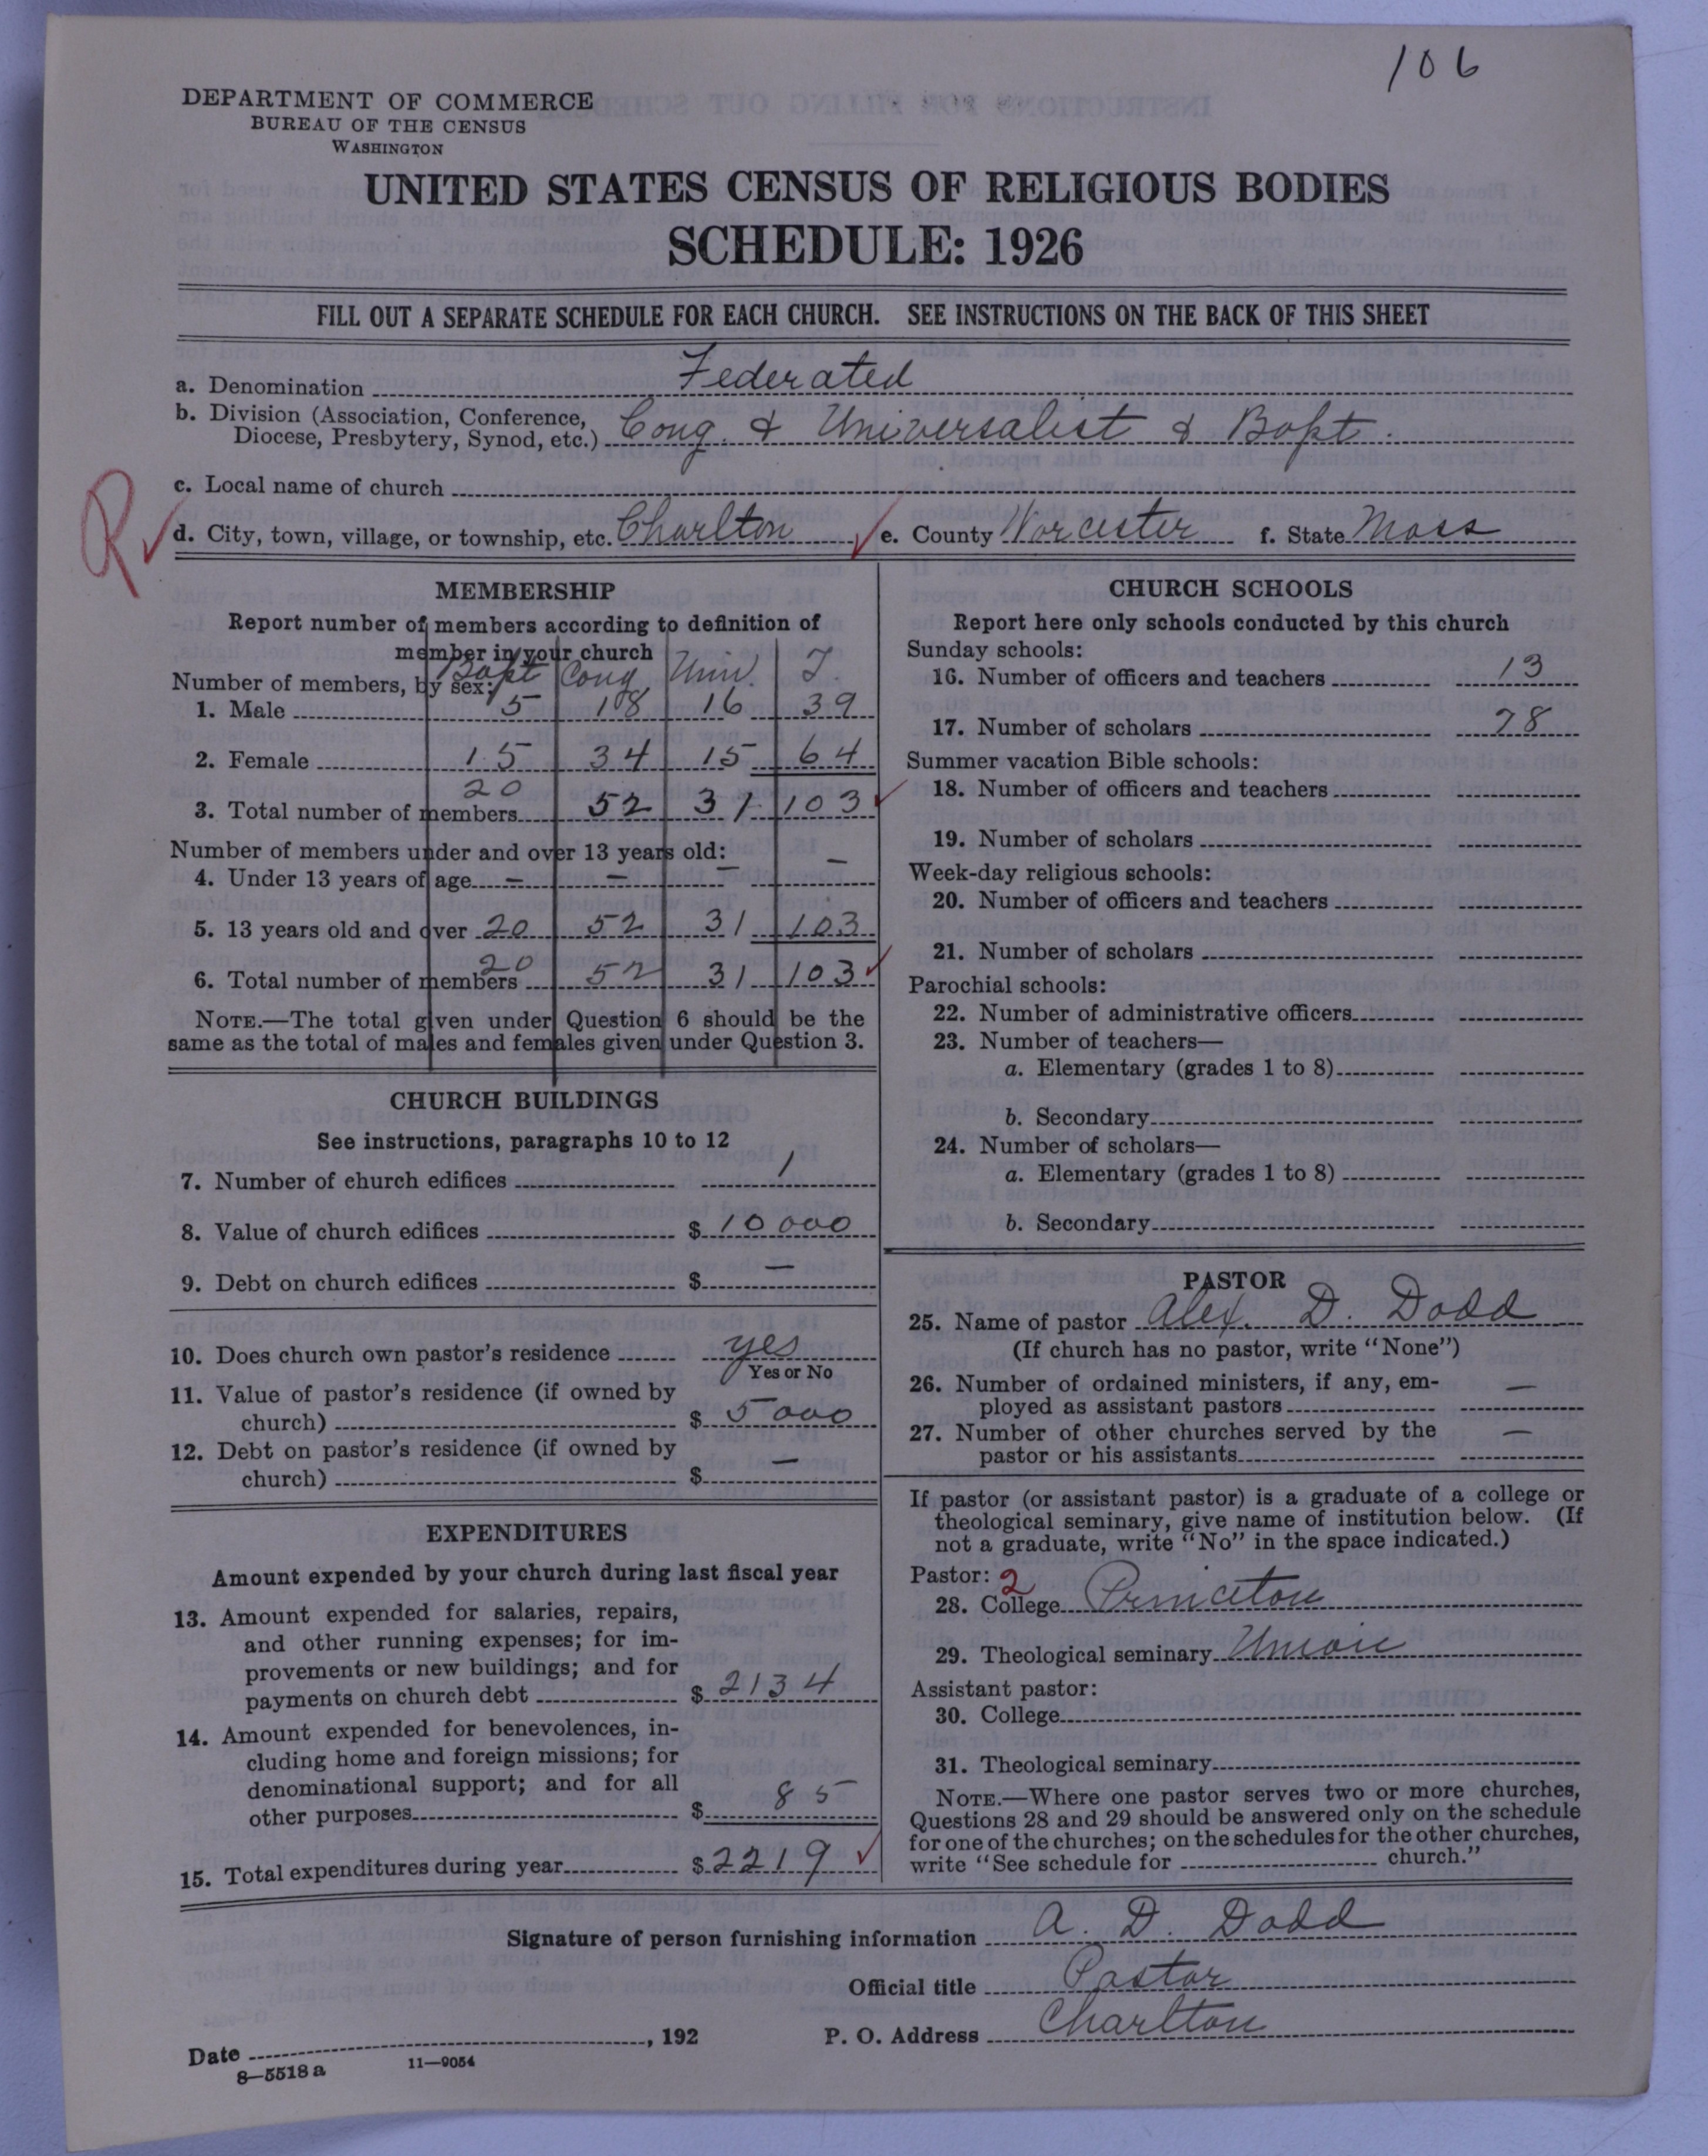 106
DEPARTMENT OF COMMERCE
BUREAU OF THE CENSUS
WASHINGTON
UNITED STATES CENSUS OF RELIGIOUS BODIES
SCHEDULE: 1926
FILL OUT A SEPARATE SCHEDULE FOR EACH CHURCH. SEE INSTRUCTIONS ON THE BACK OF THIS SHEET
a. Denomination Federated
b. Division (Association, Conference,
Diocese, Presbytery, Synod, etc.) Cong. & Universalist & Bapt.
c. Local name of church
R
d. City, town, village, or township, etc. Charlton e. County Worcester f. State Mass
MEMBERSHIP
Report number of members according to definition of
member in your church
Bapt Cong Univ. T
Number of members, by sex:
1. Male 5 18 16 39
2. Female 15 34 15 64
3. Total number of members 20 52 31 103
Number of members under and over 13 years old:
4. Under 13 years of age — — — —
5. 13 years old and over 20 52 31 103
6. Total number of members 20 52 31 103
NOTE.—The total given under Question 6 should be the
same as the total of males and females given under Question 3.
CHURCH BUILDINGS
See instructions, paragraphs 10 to 12
7. Number of church edifices 1
8. Value of church edifices $ 10 000
9. Debt on church edifices $ —
10. Does church own pastor's residence yes
Yes or No
11. Value of pastor's residence (if owned by
church) $ 5 000
12. Debt on pastor's residence (if owned by
church) $ —
EXPENDITURES
Amount expended by your church during last fiscal year
13. Amount expended for salaries, repairs,
and other running expenses; for im-
provements or new buildings; and for
payments on church debt $ 2134
14. Amount expended for benevolences, in-
cluding home and foreign missions; for
denominational support; and for all
other purposes $ 85
15. Total expenditures during year $ 2219
CHURCH SCHOOLS
Report here only schools conducted by this church
Sunday schools:
16. Number of officers and teachers 13
17. Number of scholars 78
Summer vacation Bible schools:
18. Number of officers and teachers
19. Number of scholars
Week-day religious schools:
20. Number of officers and teachers
21. Number of scholars
Parochial schools:
22. Number of administrative officers
23. Number of teachers—
a. Elementary (grades 1 to 8)
b. Secondary
24. Number of scholars—
a. Elementary (grades 1 to 8)
b. Secondary
PASTOR
25. Name of pastor Alex. D. Dodd
(If church has no pastor, write "None")
26. Number of ordained ministers, if any, em-
ployed as assistant pastors —
27. Number of other churches served by the
pastor or his assistants —
If pastor (or assistant pastor) is a graduate of a college or
theological seminary, give name of institution below. (If
not a graduate, write "No" in the space indicated.)
Pastor: 2
28. College Princeton
29. Theological seminary Union
Assistant pastor:
30. College
31. Theological seminary
NOTE.—Where one pastor serves two or more churches,
Questions 28 and 29 should be answered only on the schedule
for one of the churches; on the schedules for the other churches,
write "See schedule for church."
Signature of person furnishing information A. D. Dodd
Official title Pastor
Date , 192 P. O. Address Charlton
8—5518 a 11—9054